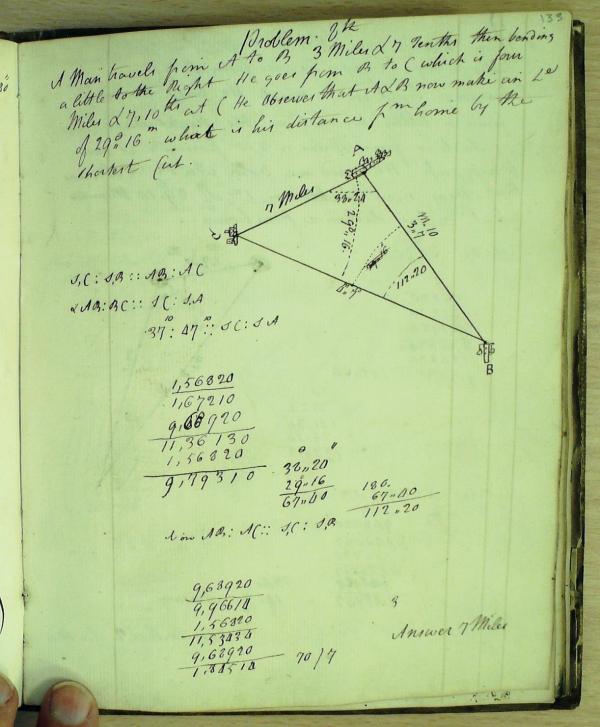 133
Problem. 8th
A Man travels from A to B 3 Miles & 7 Tenths then bending
a little to the Right He goes from B to C which is four
Miles & 7,10ths at C He Observes that A & B now make an Le
of 29°,,16m what is his distance fm home by the
shortest Cut.
A
7 Miles
38,,24
C
29°,,16
M. 10
3,,7
112,,20
B
S,C : S,B :: AB : AC
& AB : BC :: SC : S,A
37 : 47 :: SC : SA
1,56820
1,67210
9,68920
11,36130
1,56820
9,79310
38,,20
29,,16
67,,40
180.
67,,40
112,,20
Now AB : AC :: S,C : S,B
9,68920
9,96614
1,56820
11,53434
9,68920
1,84514
70/7
Answer 7 Miles